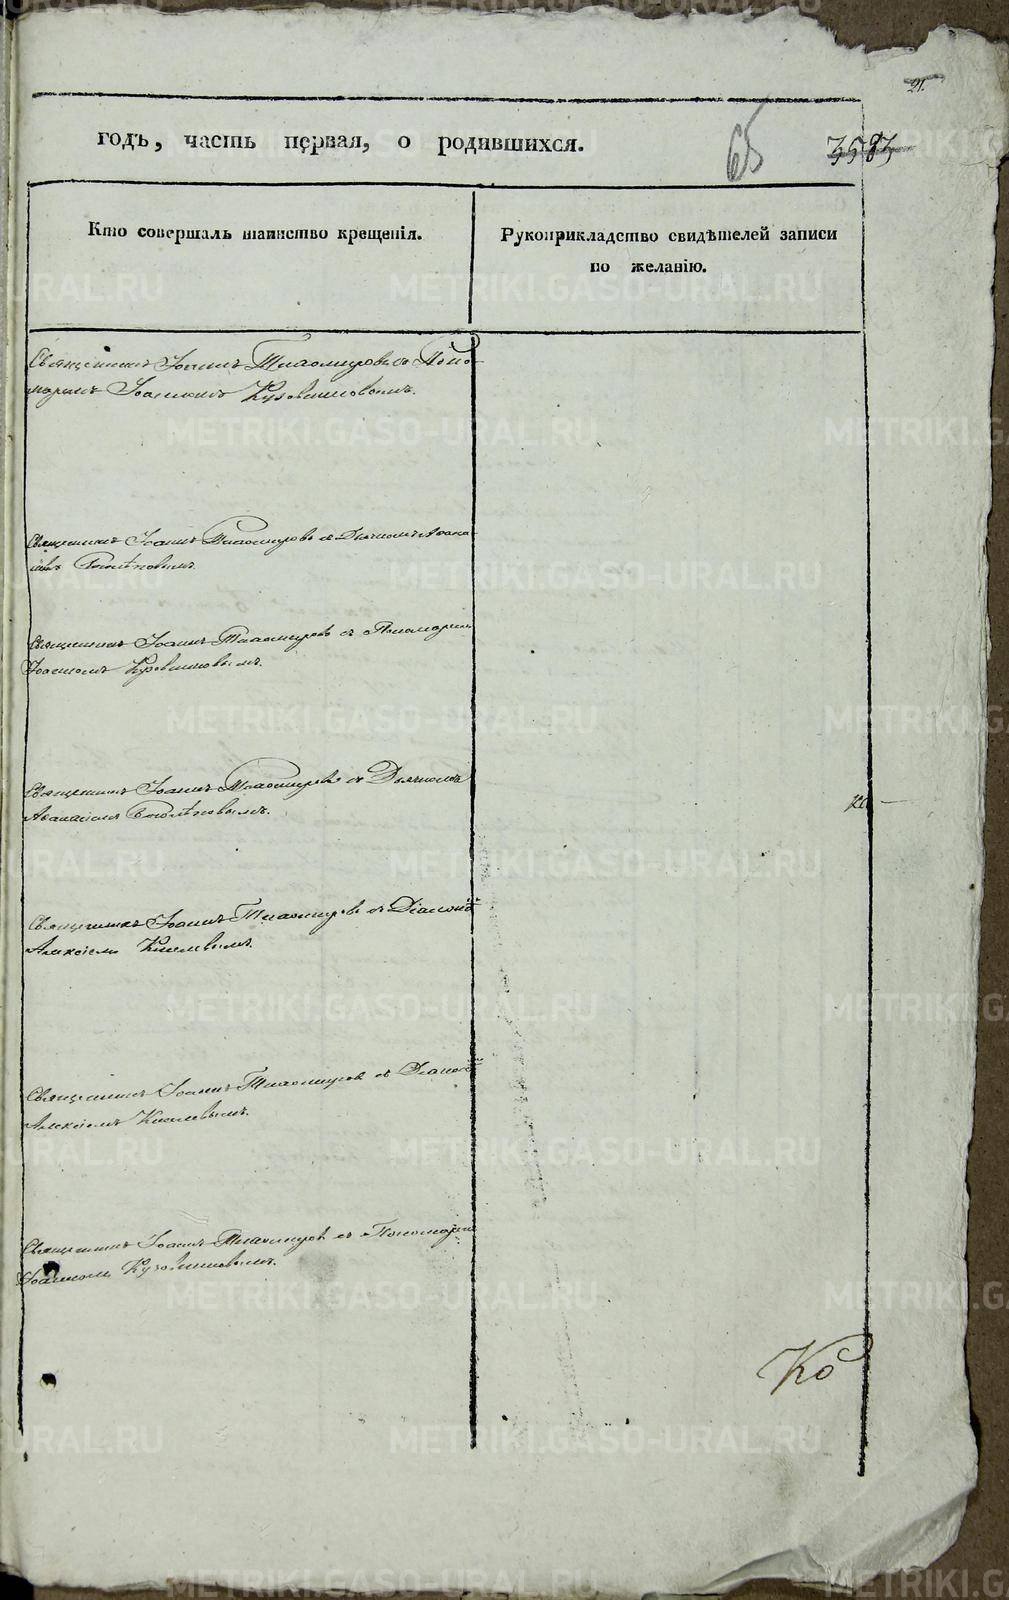 21.
годъ, часть первая, о родившихся.
65
3583
Кто совершалъ таинство крещенія.
Рукоприкладство свидѣтелей записи
по желанію.
Священникъ Іоаннъ Тихомировъ съ Поно-
маремъ Іоанномъ Кузовниковымъ.
Священникъ Іоаннъ Тихомировъ съ Дьячкомъ Афана-
сіемъ
Священникъ Іоаннъ Тихомировъ съ Пономаремъ
Іоанномъ Кузовниковымъ.
Священникъ Іоаннъ Тихомировъ съ Дьячкомъ
Афанасіемъ
Священникъ Іоаннъ Тихомировъ съ Діакономъ
Алексіемъ Киселевымъ.
Священникъ Іоаннъ Тихомировъ съ Діакономъ
Алексіемъ Киселевымъ.
Священникъ Іоаннъ Тихомировъ съ Пономаремъ
Іоанномъ Кузовниковымъ.
Ко
METRIKI.GASO-URAL.RU